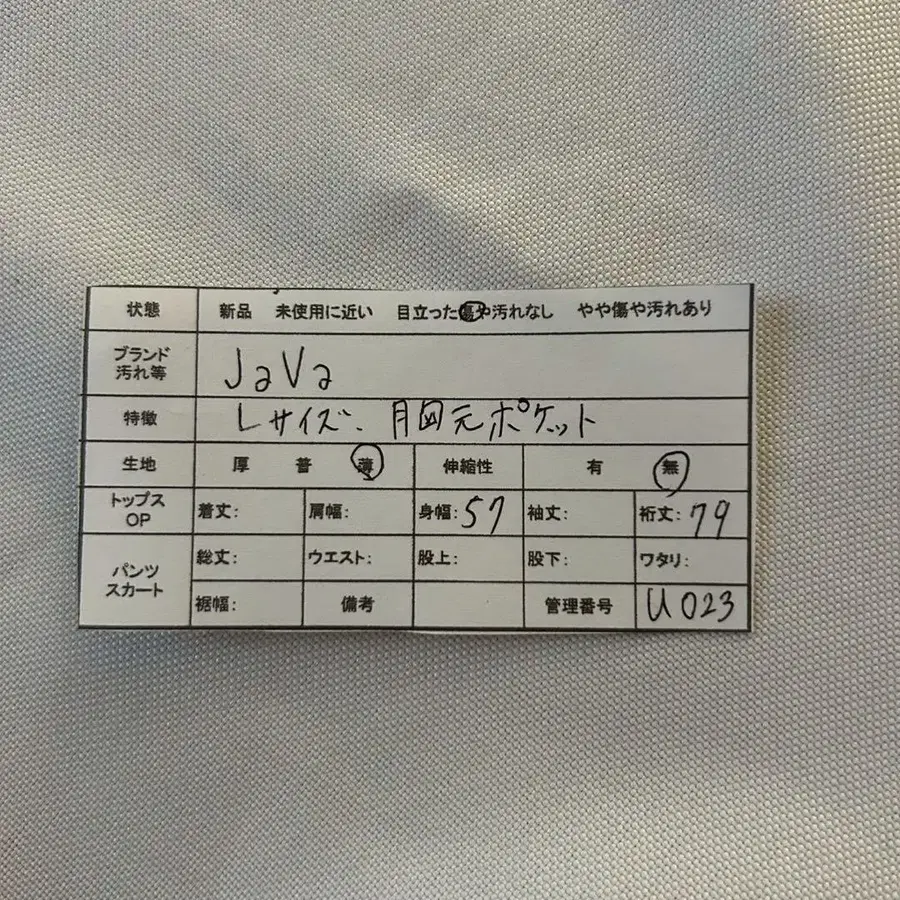 状態 新品 未使用に近い 目立った傷や汚れなし やや傷や汚れあり
ブランド
汚れ等
JaVa
特徴 Lサイズ. 胸元ポケット
生地 厚 普 薄 伸縮性 有 無
トップス
OP
着丈: 肩幅: 身幅:57 袖丈: 裄丈:79
パンツ
スカート
総丈: ウエスト: 股上: 股下: ワタリ:
裾幅: 備考 管理番号 U023